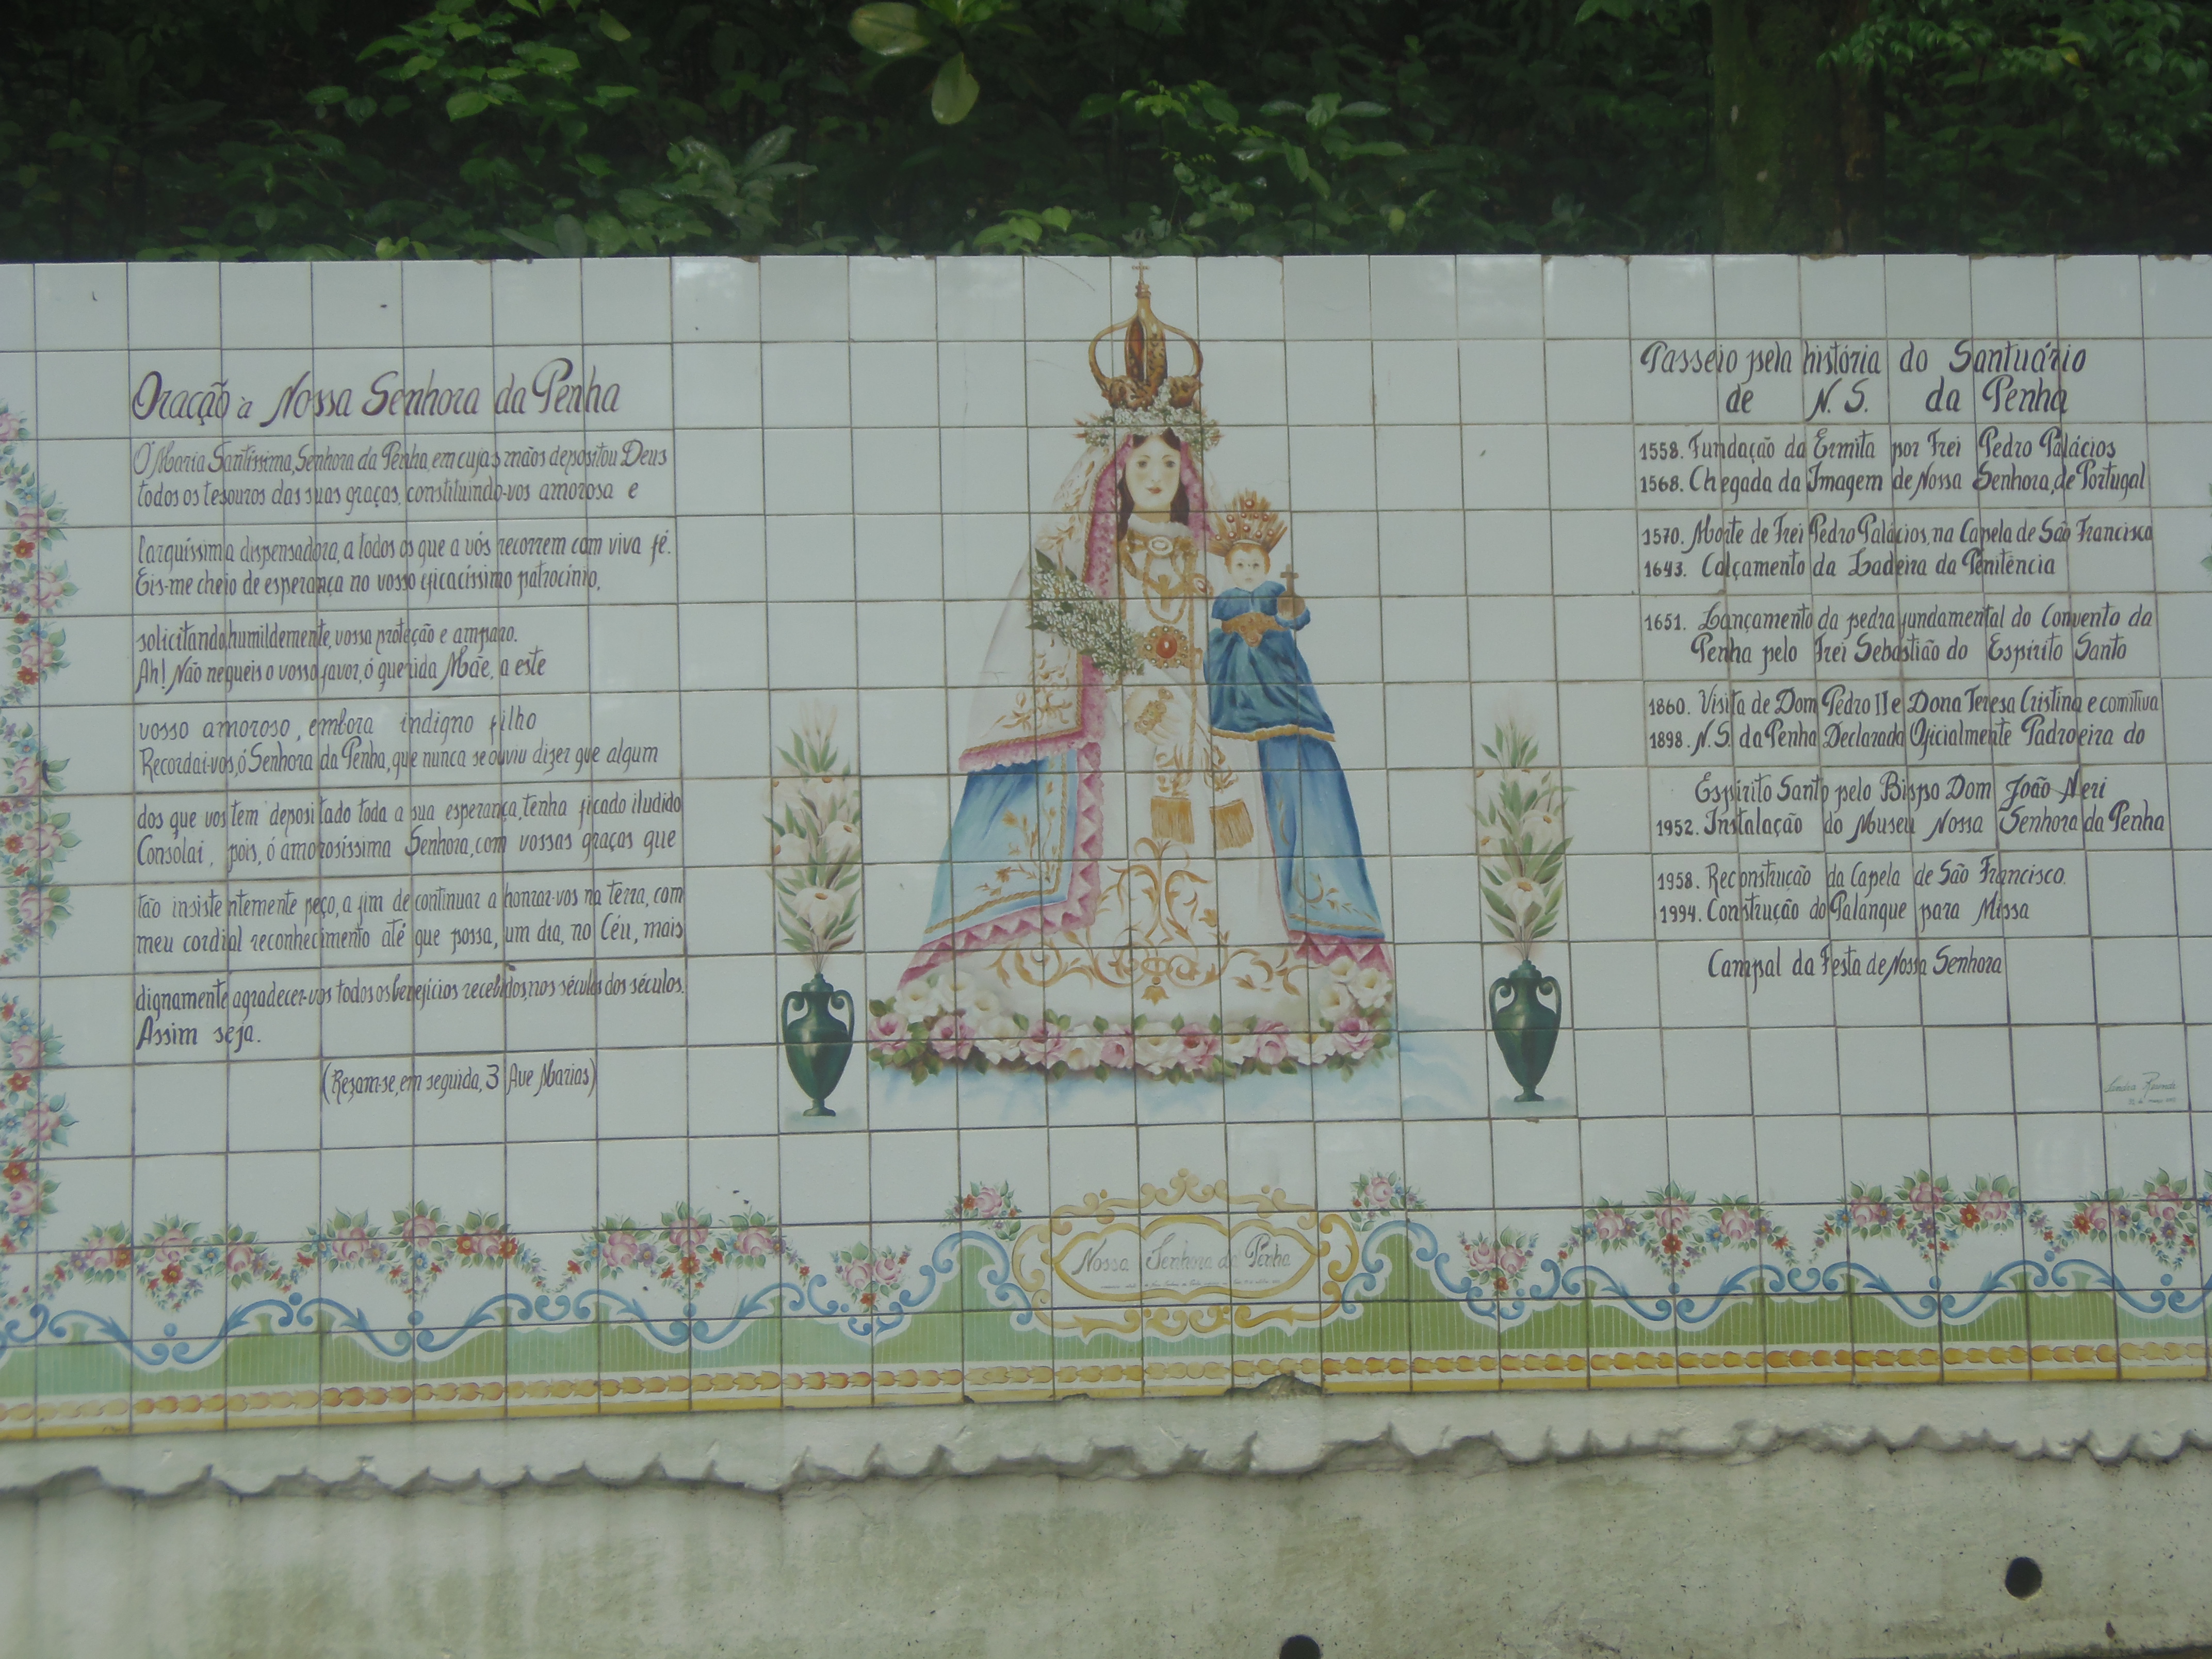 Oração à Nossa Senhora da Penha
Ó Maria Santíssima, Senhora da Penha, em cujas mãos depositou Deus
todos os tesouros das suas graças, constituindo-vos amorosa e
larguíssima dispensadora, a todos os que a vós recorrem com viva fé.
Eis-me cheio de esperança no vosso eficacíssimo patrocínio,
solicitando, humildemente, vossa proteção e amparo.
Ah! Não negueis o vosso favor, ó querida Mãe, a este
vosso amoroso, embora indigno filho
Recordai-vos, ó Senhora da Penha, que nunca se ouviu dizer que algum
dos que vos tem depositado toda a sua esperança, tenha ficado iludido
Consolai, pois, ó amorosíssima Senhora, com vossas graças que
tão insistentemente peço, a fim de continuar a honrar-vos na terra, com
meu cordial reconhecimento até que possa, um dia, no Céu, mais
dignamente agradecer-vos todos os benefícios recebidos, nos séculos dos séculos.
Assim seja.
(Rezam-se, em seguida, 3 Ave Marias)
Passeio pela história do Santuário
de N. S. da Penha
1558. Fundação da Ermita por Frei Pedro Palácios
1568. Chegada da Imagem de Nossa Senhora, de Portugal
1570. Morte de Frei Pedro Palácios, na Capela de São Francisco
1643. Calçamento da Ladeira da Penitência
1651. Lançamento da pedra fundamental do Convento da
Penha pelo Frei Sebastião do Espírito Santo
1860. Visita de Dom Pedro II e Dona Teresa Cristina e comitiva
1898. N. S. da Penha Declarada Oficialmente Padroeira do
Espírito Santo pelo Bispo Dom João Neri
1952. Instalação do Museu Nossa Senhora da Penha
1958. Reconstrução da Capela de São Francisco.
1994. Construção do Palanque para Missa
Campal da Festa de Nossa Senhora
Nossa Senhora da Penha